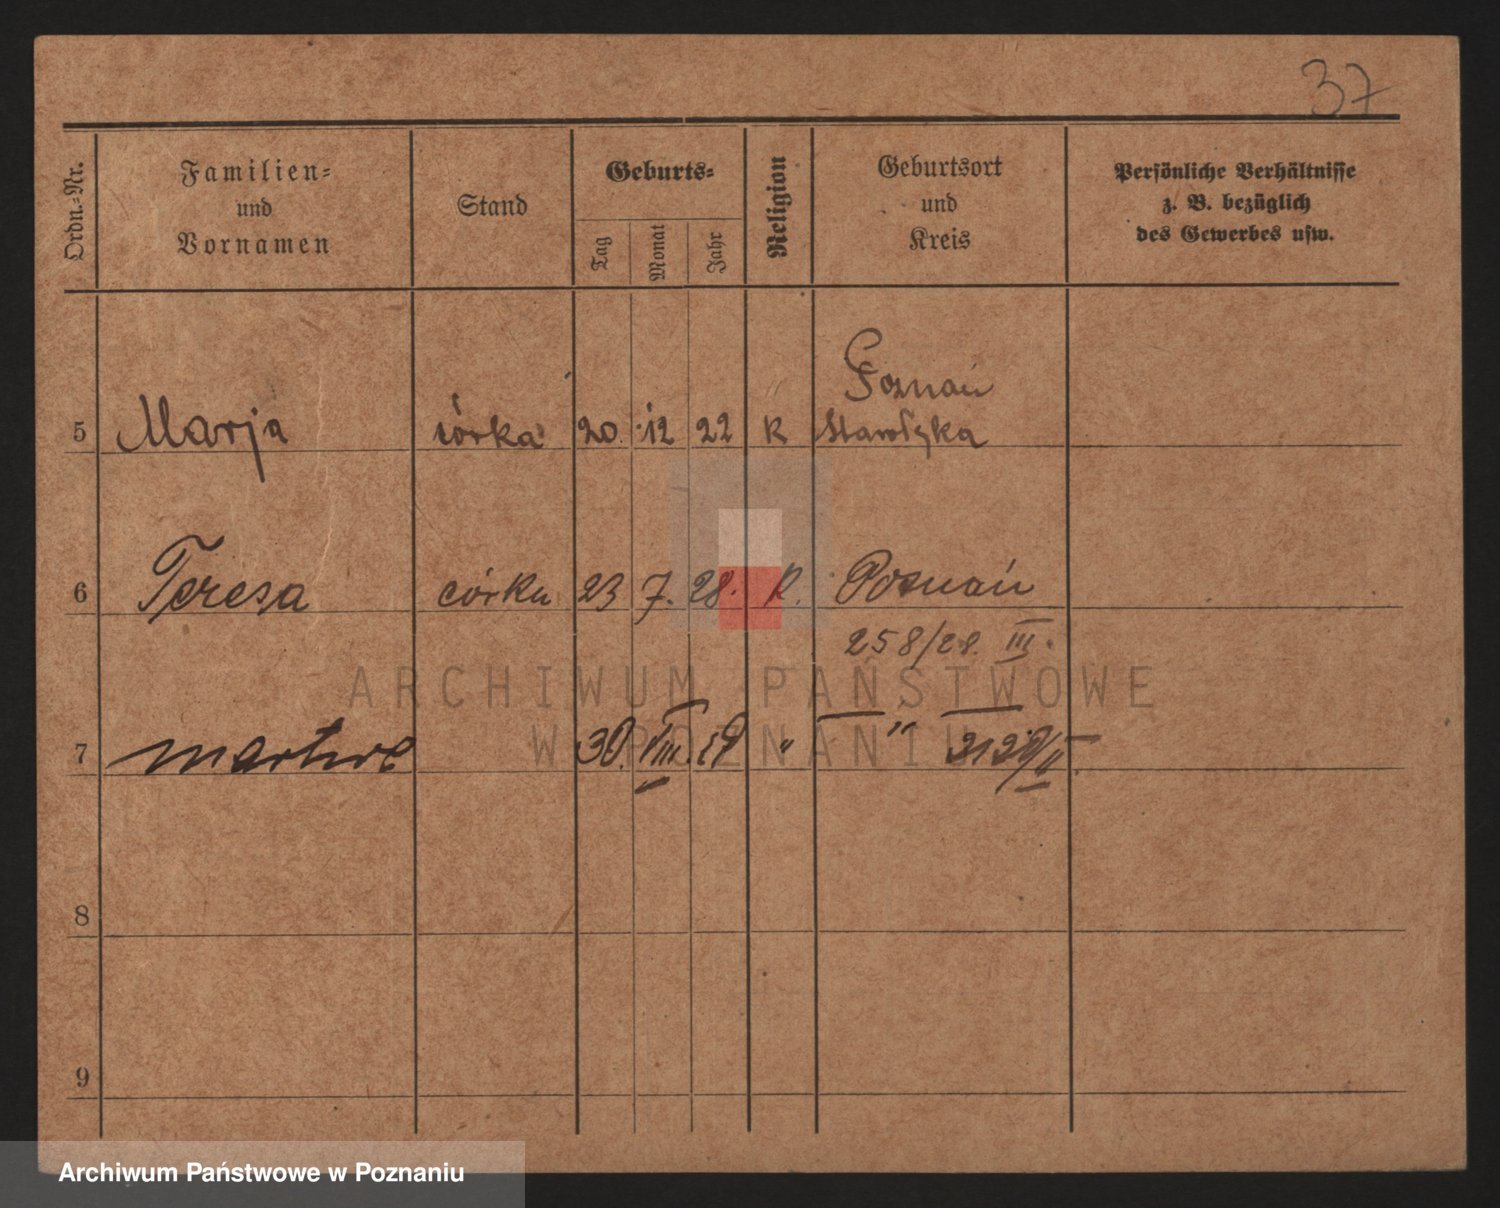 37
Ordn.-Nr.
Familien-
und
Vornamen
Stand
Geburts-
Tag
Monat
Jahr
Religion
Geburtsort
und
Kreis
Persönliche Verhältnisse
z. B. bezüglich
des Gewerbes usw.
Poznań
5 Marja córka 20. 12 22 R Starołęka
6 Teresa córka 23 7. 28. R. Poznań
258/28. III.
7 martwe 30. VIII. "
8
9
ARCHIWUM PAŃSTWOWE
W POZNANIU
Archiwum Państwowe w Poznaniu